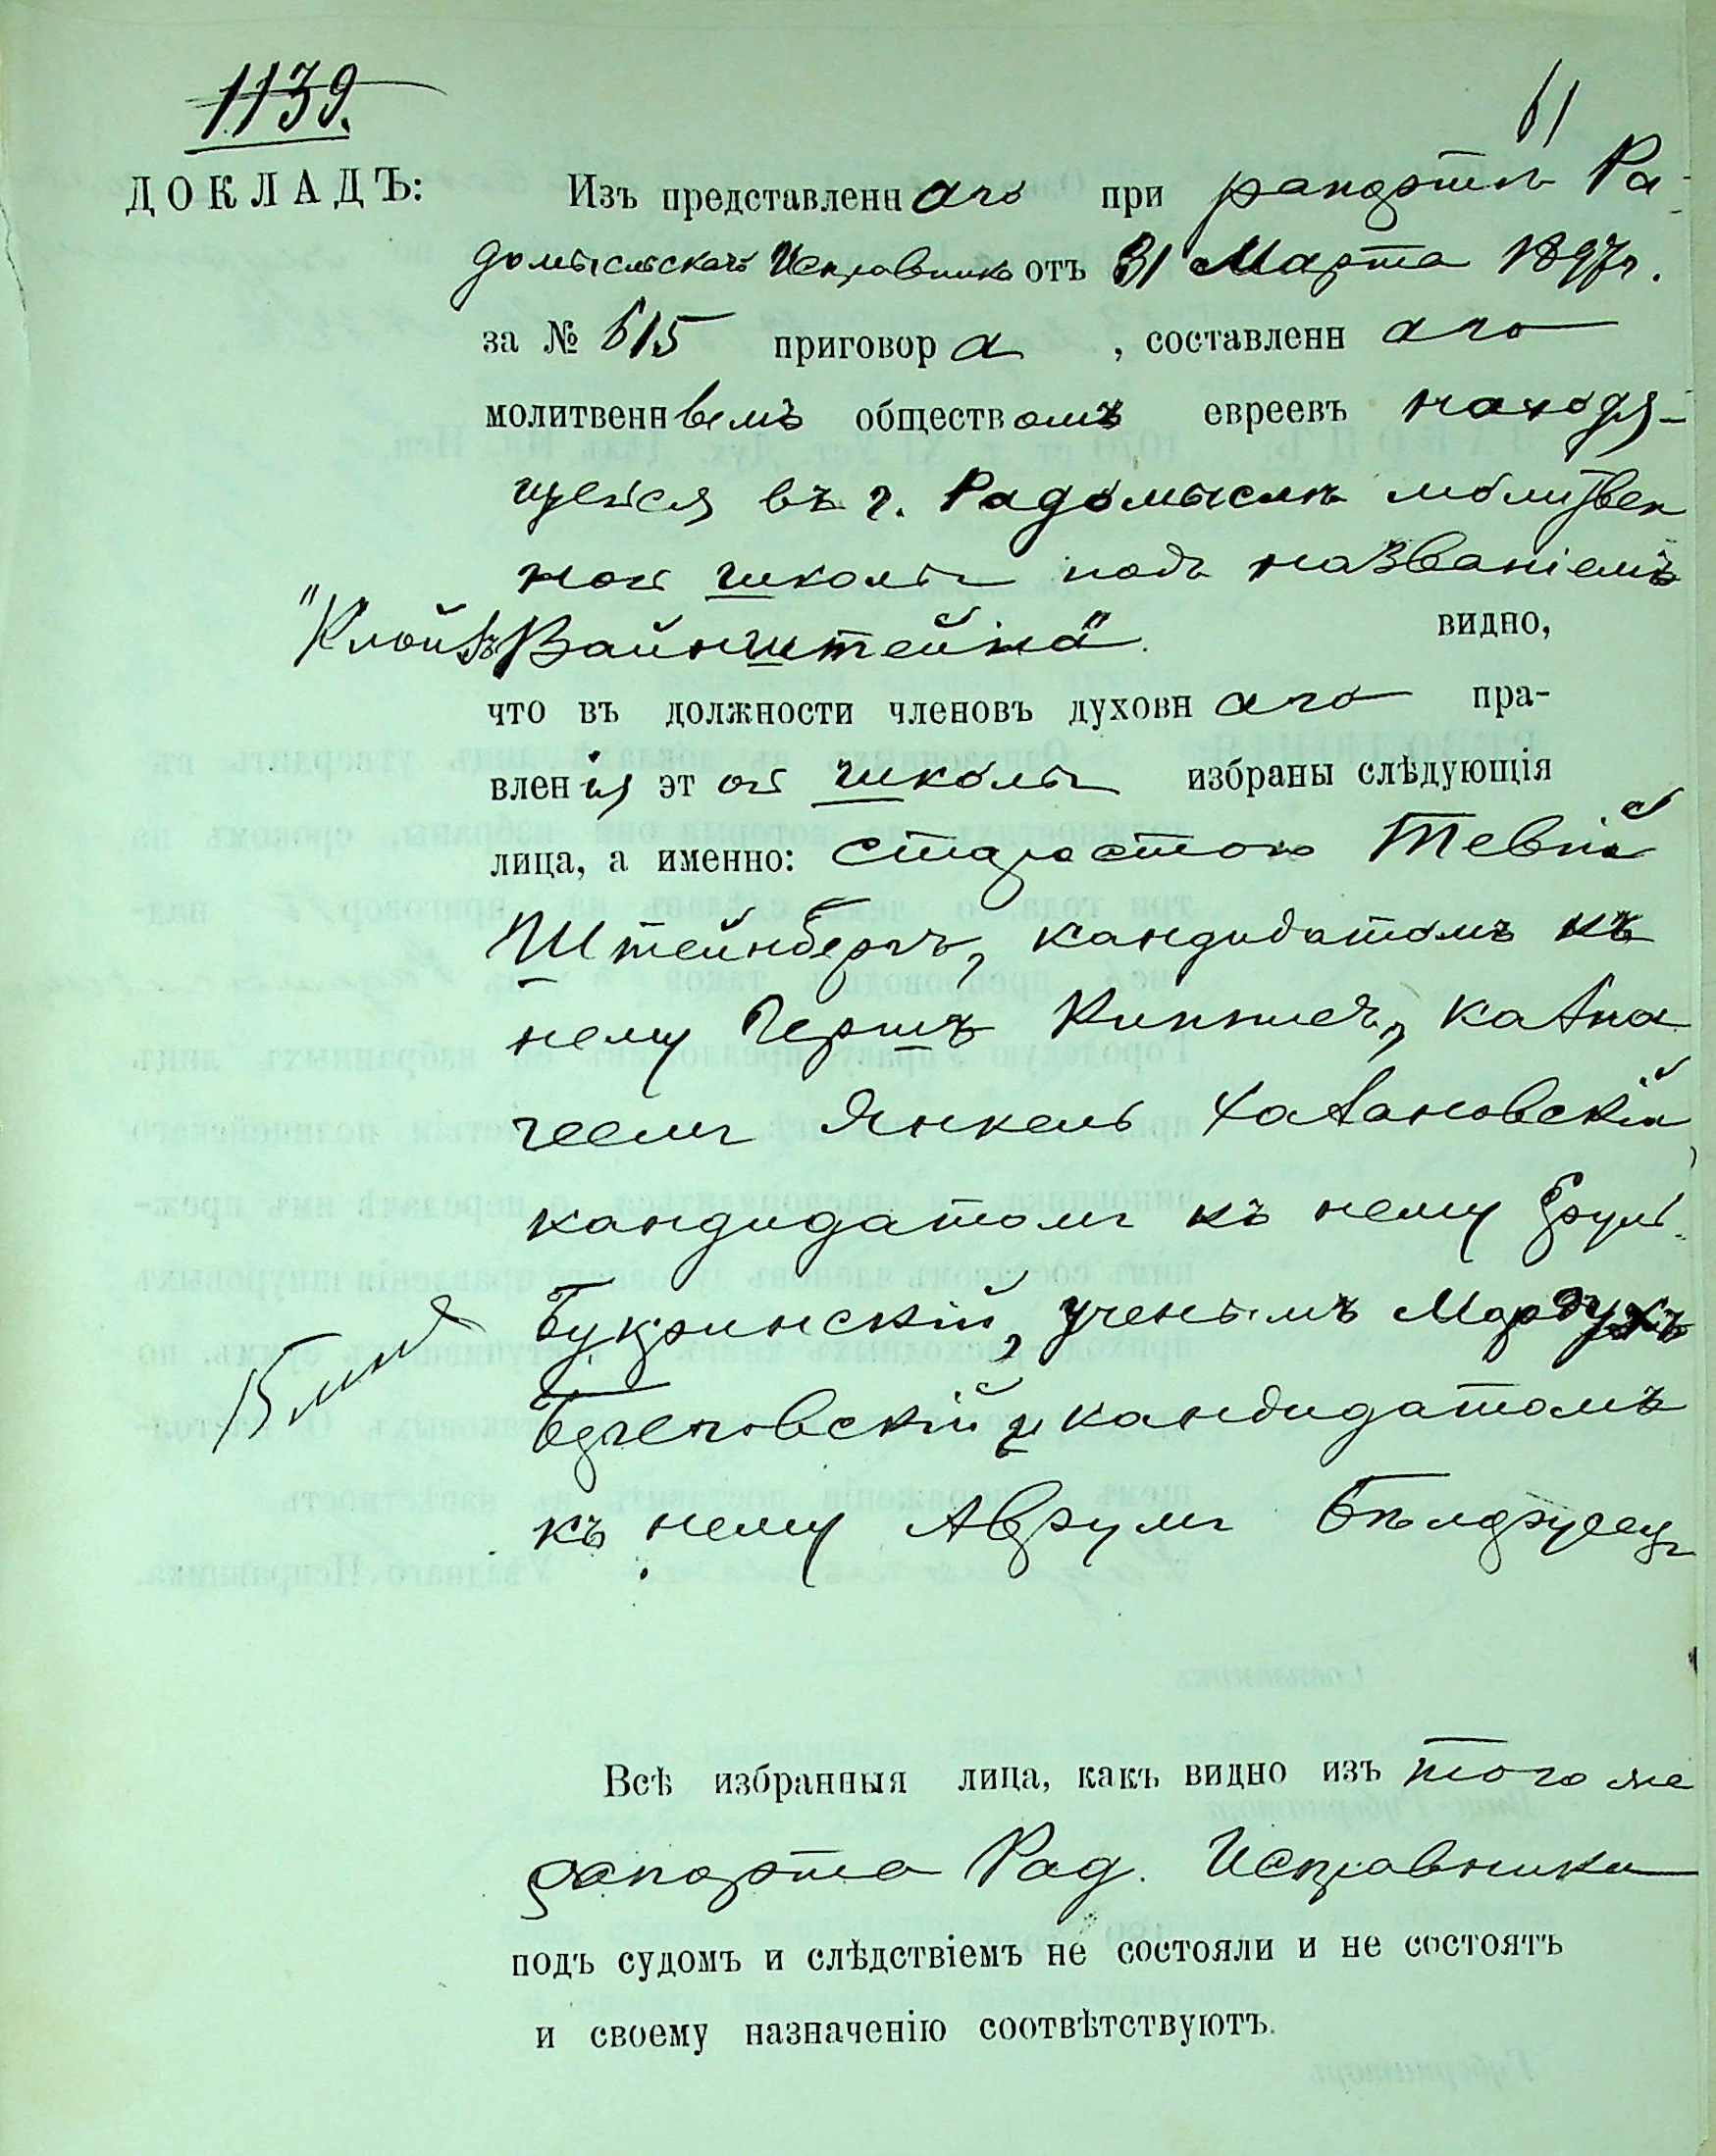 1139.
61
ДОКЛАДЪ: Изъ представленнаго при рапортѣ Ра-
домысльскаго Исправника отъ 31 Марта 1897 г.
за № 615 приговора, составленнаго
молитвеннымъ обществомъ евреевъ находя-
щейся въ г. Радомыслѣ молитвен
ной школы подъ названіемъ
"Клойзъ Вайнштейна". видно,
что въ должности членовъ духовнаго пра-
вленія этой школы избраны слѣдующія
лица, а именно: старостою Тевій
Штейнбергъ, кандидатомъ къ
нему Гершъ казна
чеемъ Янкель Хазановскій,
кандидатомъ къ нему Сруль
Букринскій, ученымъ Мордухъ
и кандидатомъ
къ нему Аврумъ
Всѣ избранныя лица, какъ видно изъ того же
рапорта Рад. Исправника
подъ судомъ и слѣдствіемъ не состояли и не состоятъ
и своему назначенію соотвѣтствуютъ.